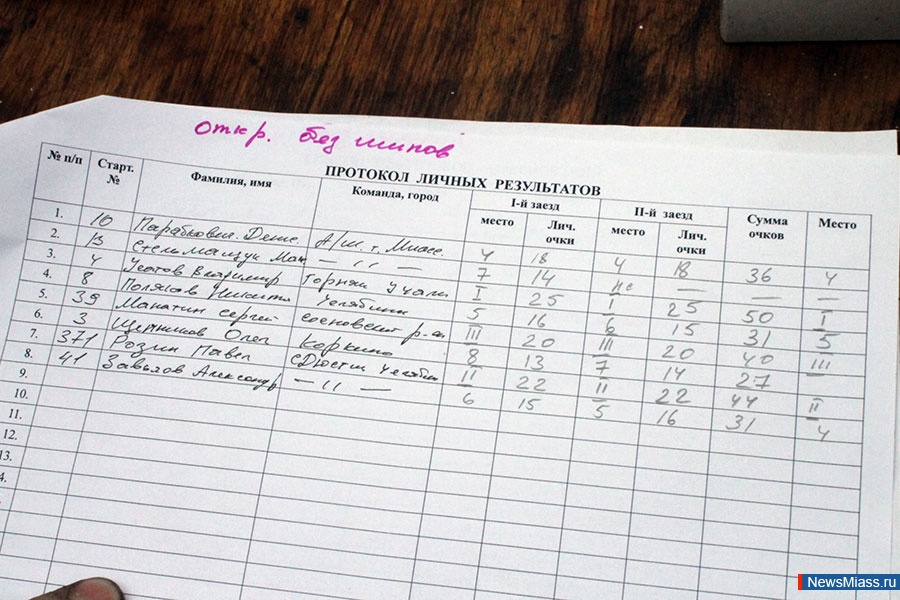 Откр. без шипов
ПРОТОКОЛ ЛИЧНЫХ РЕЗУЛЬТАТОВ
№ п/п Старт. № Фамилия, имя Команда, город I-й заезд II-й заезд Сумма очков Место
место Лич. очки место Лич. очки
1. 10 Дени. г. Миасс. 4 18 4 18 36 4
2. 13 Стельмащук Мак — " — 7 14 не — — —
3. 4 Усатов Владимир Горняк Учалы I 25 I 25 50 I
4. 8 Поляков Никита Челябинск 5 16 6 15 31 5
5. 39 Манатин Сергей сосновский р-он III 20 III 20 40 III
6. 3 Олег Коркино 8 13 7 14 27 —
7. 371 Розин Павел Челябин II 22 II 22 44 II
8. 41 Завьялов Александр — " — 6 15 5 16 31 4
9.
10.
11.
12.
13.
4.
NewsMiass.ru